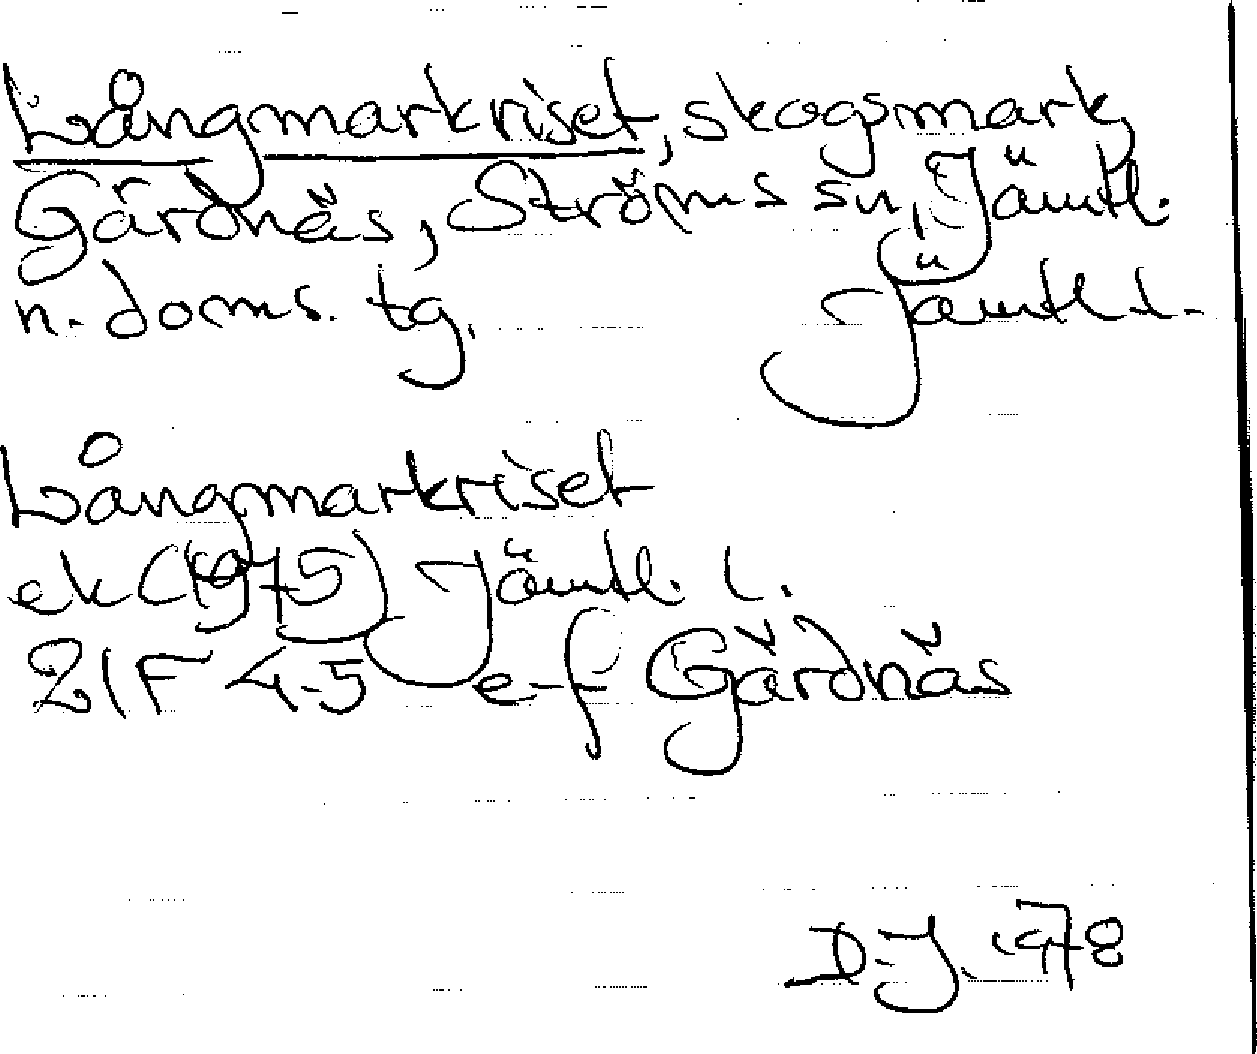 Långmarkriset, skogsmark,
Gärdnäs, Ströms sn, Jämtl.
n. doms. tg. Jämtl l.
Långmarkriset
ek (1975) Jämtl. l.
21F 4-5 e-f Gärdnäs
D-J 1978